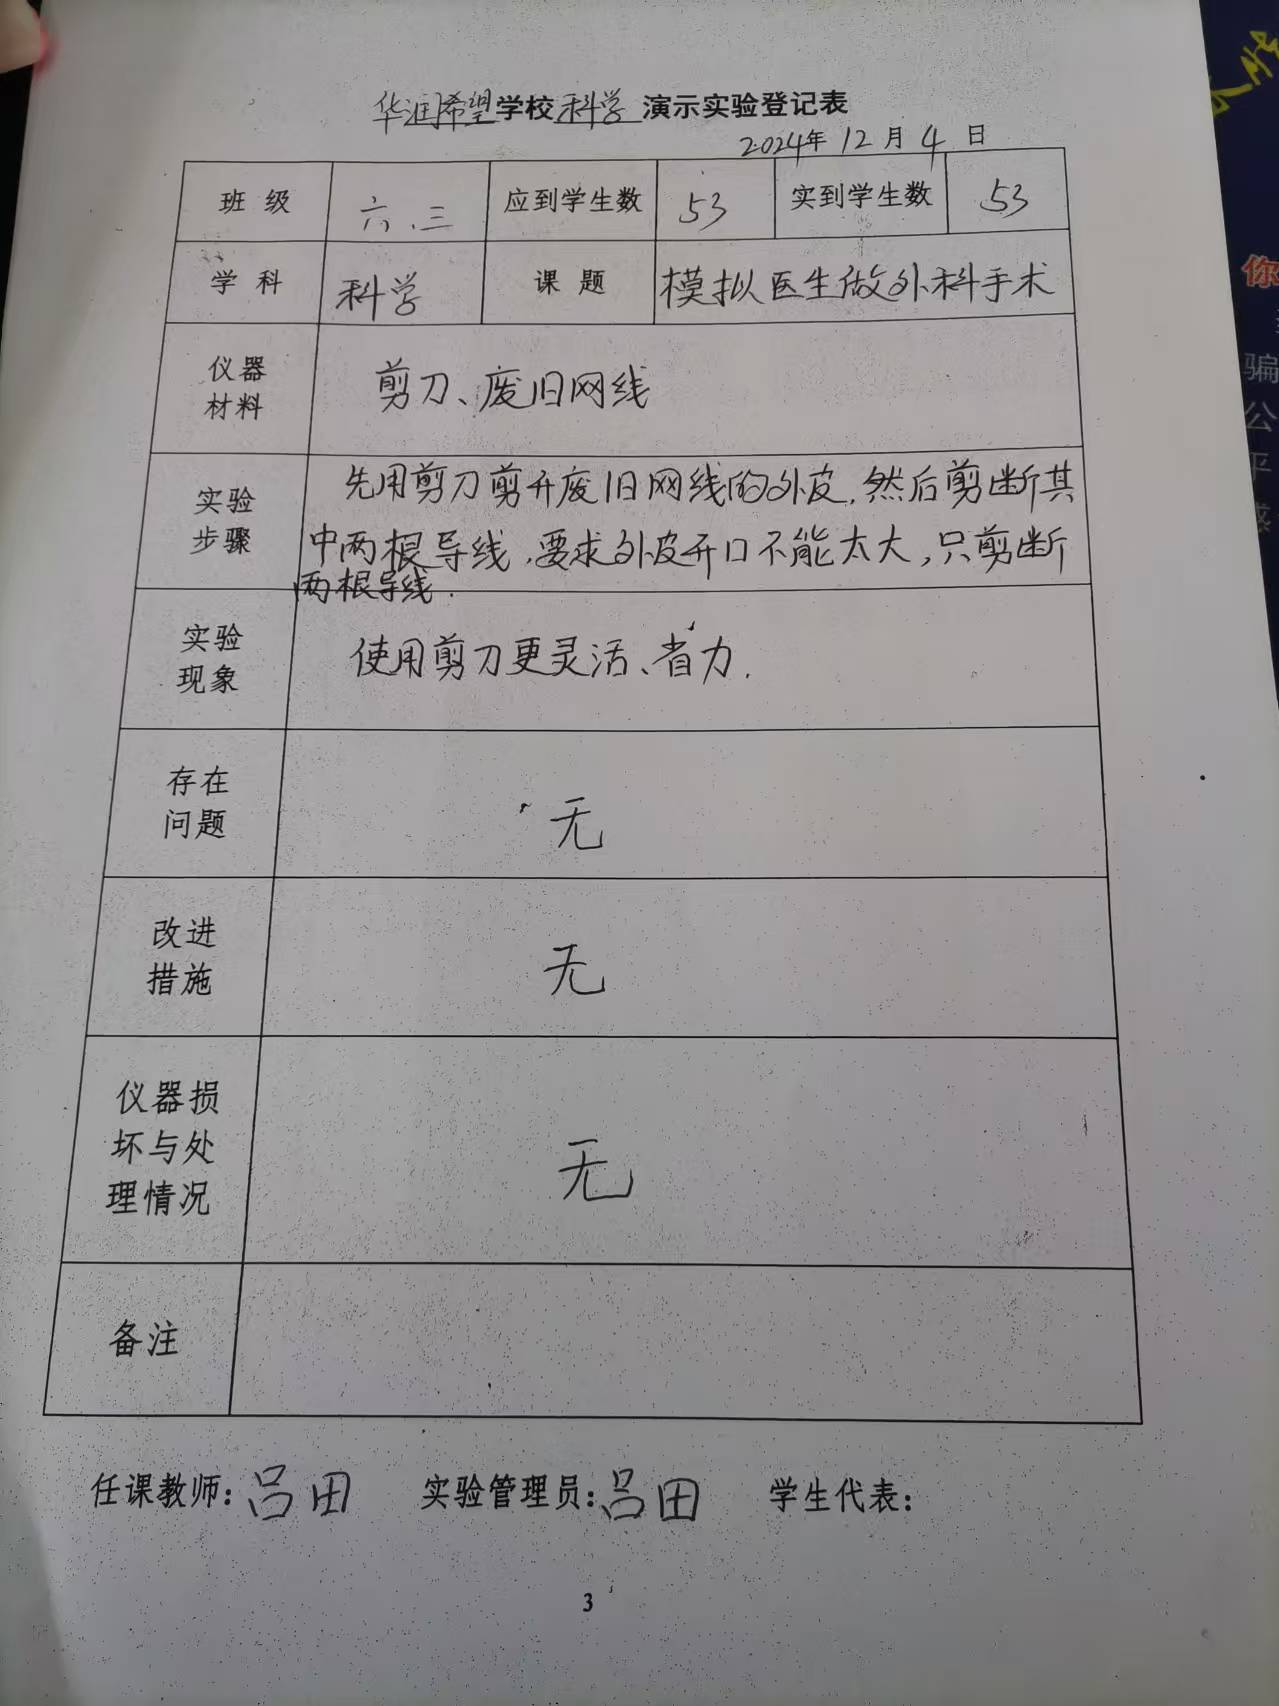 华润希望学校科学 演示实验登记表
2024年 12 月 4 日
班 级 六、三 应到学生数 53 实到学生数 53
学 科 科学 课 题 模拟医生做外科手术
仪器
材料
剪刀、废旧网线
实验
步骤
先用剪刀剪开废旧网线的外皮,然后剪断其
中两根导线,要求外皮开口不能太大,只剪断
两根导线.
实验
现象
使用剪刀更灵活、省力.
存在
问题
无
改进
措施
无
仪器损
坏与处
理情况
无
备注
任课教师:吕田 实验管理员:吕田 学生代表:
3
你
骗
公
平